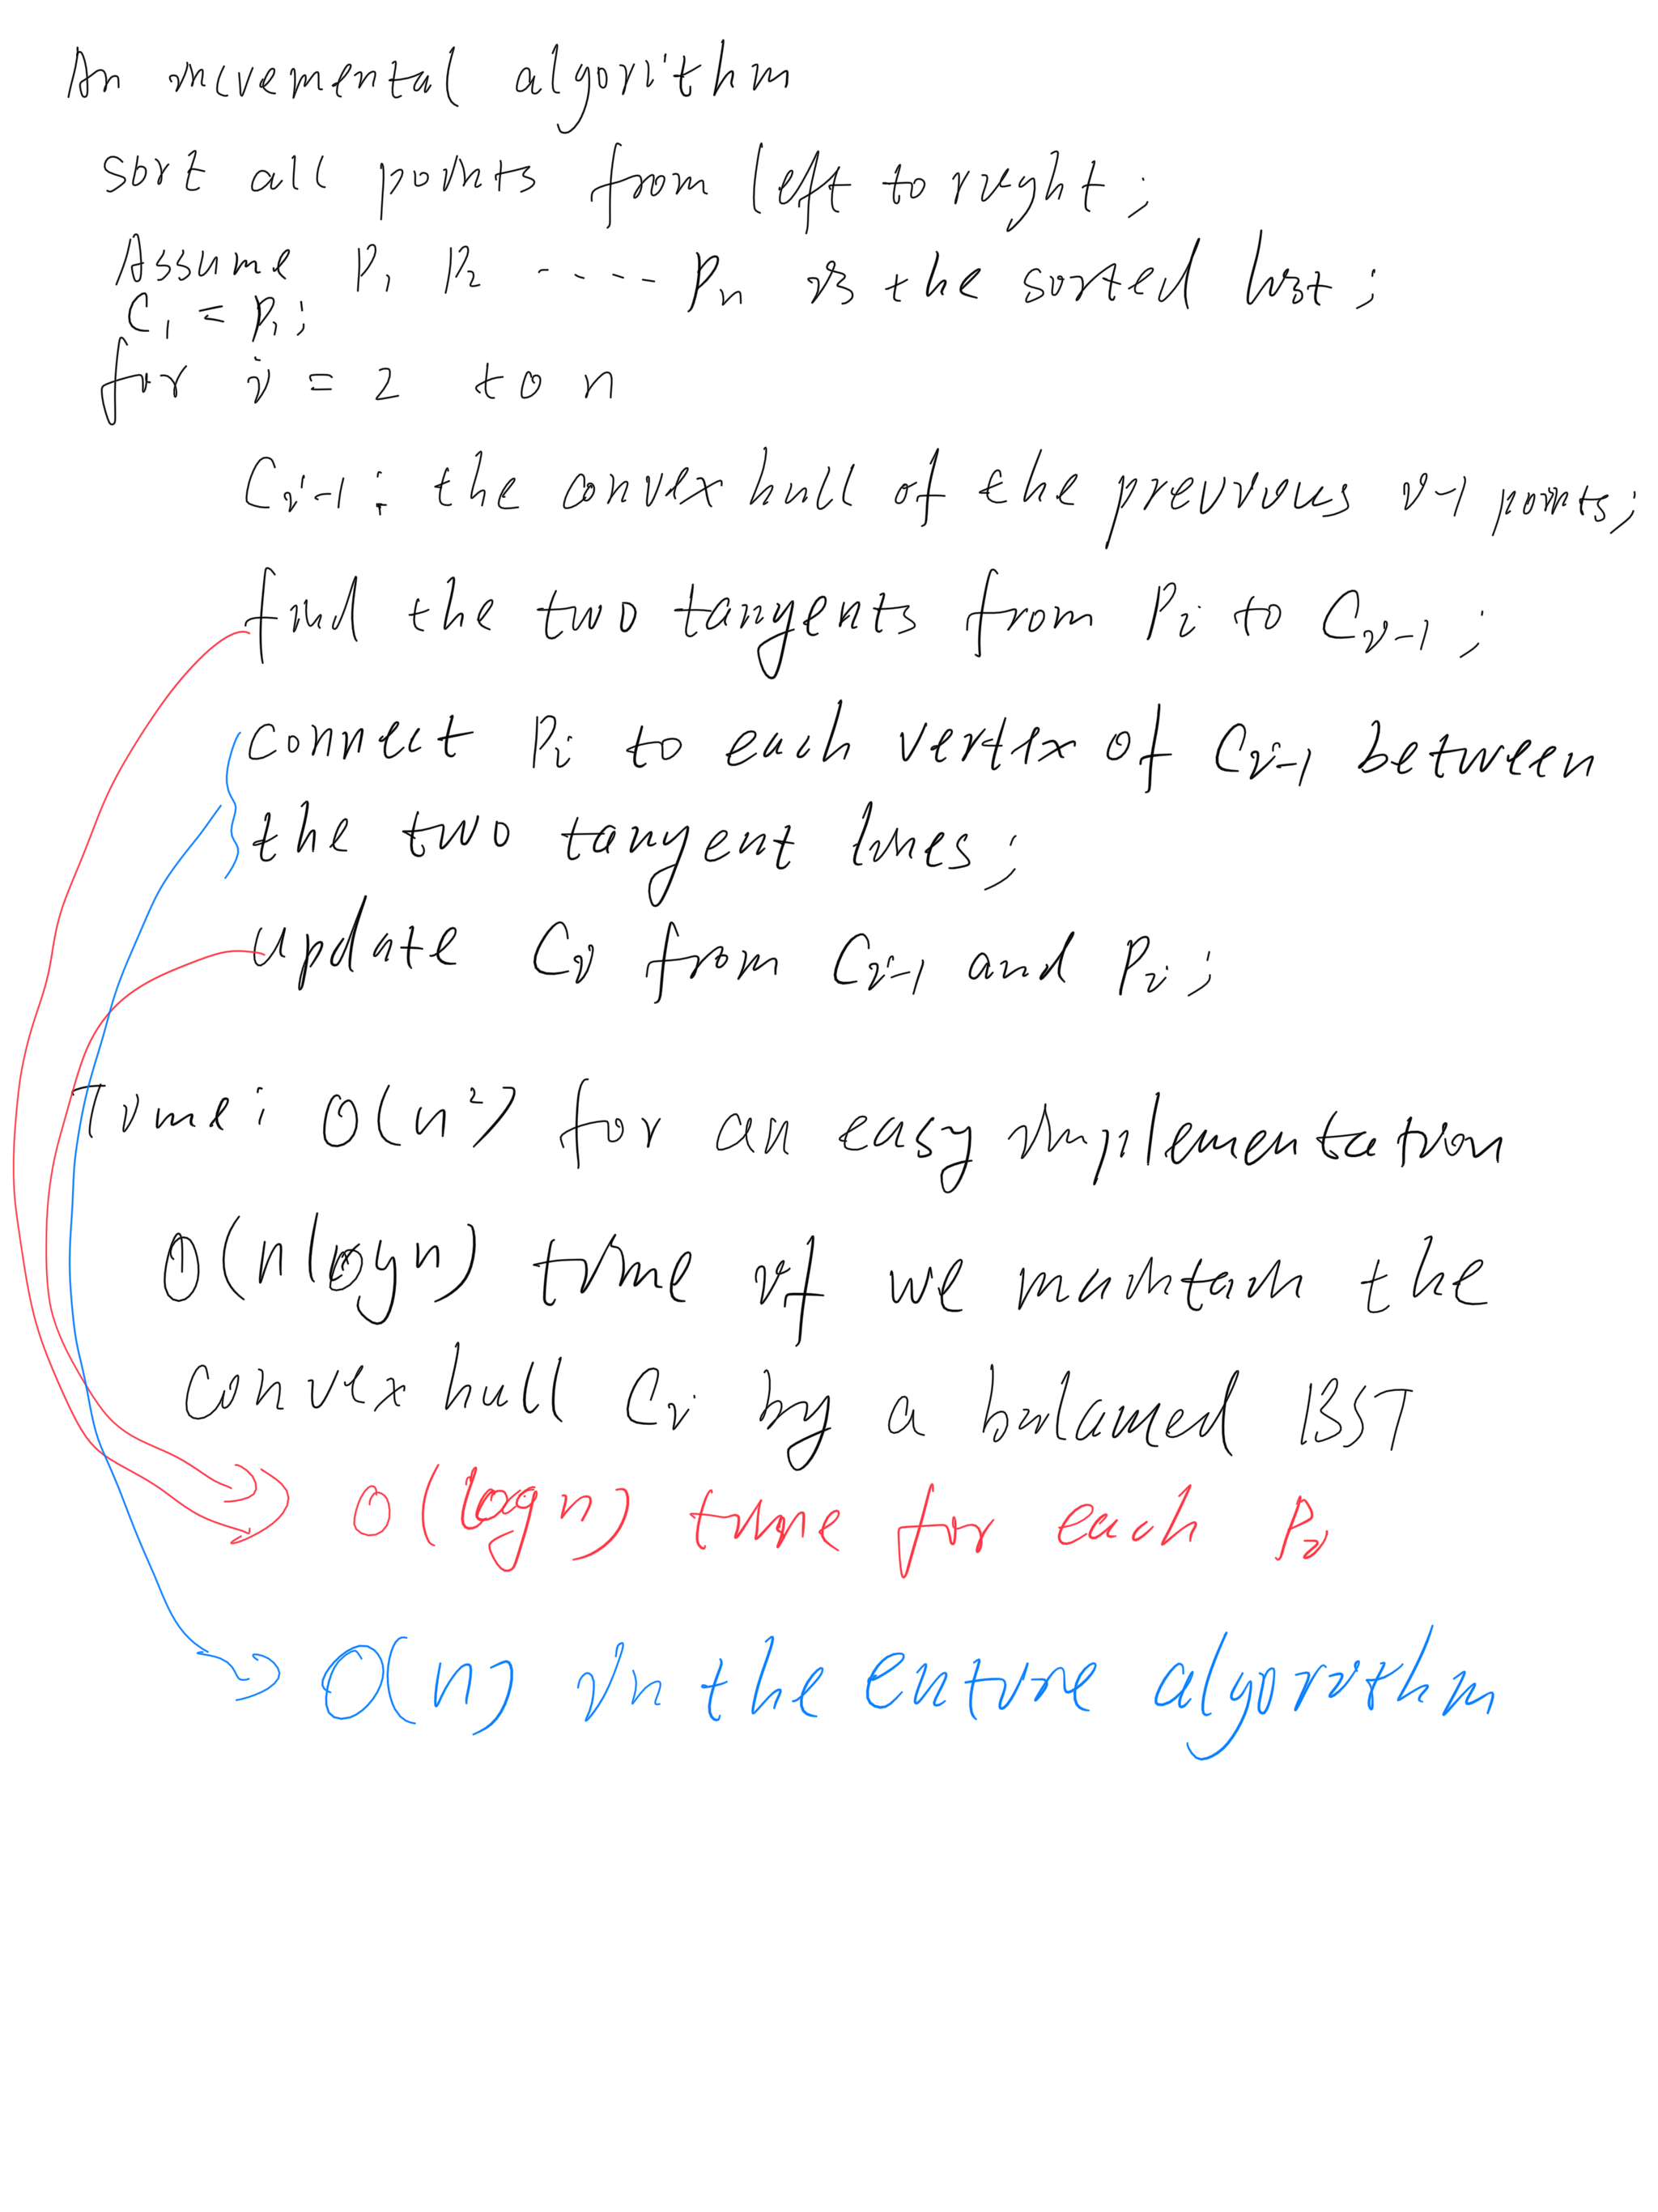 An incremental algorithm
sort all points from left to right;
Assume P1 P2 ..... Pn is the sorted list;
C1 = P1;
for i = 2 to n
Ci-1: the convex hull of the previous i-1 points;
find the two tangents from Pi to Ci-1;
connect Pi to each vertex of Ci-1 between
the two tangent lines;
update Ci from Ci-1 and Pi;
Time: O(n²) for an easy implementation
O(n log n) time if we maintain the
convex hull Ci by a balanced BST
O(log n) time for each Pi
O(n) in the entire algorithm